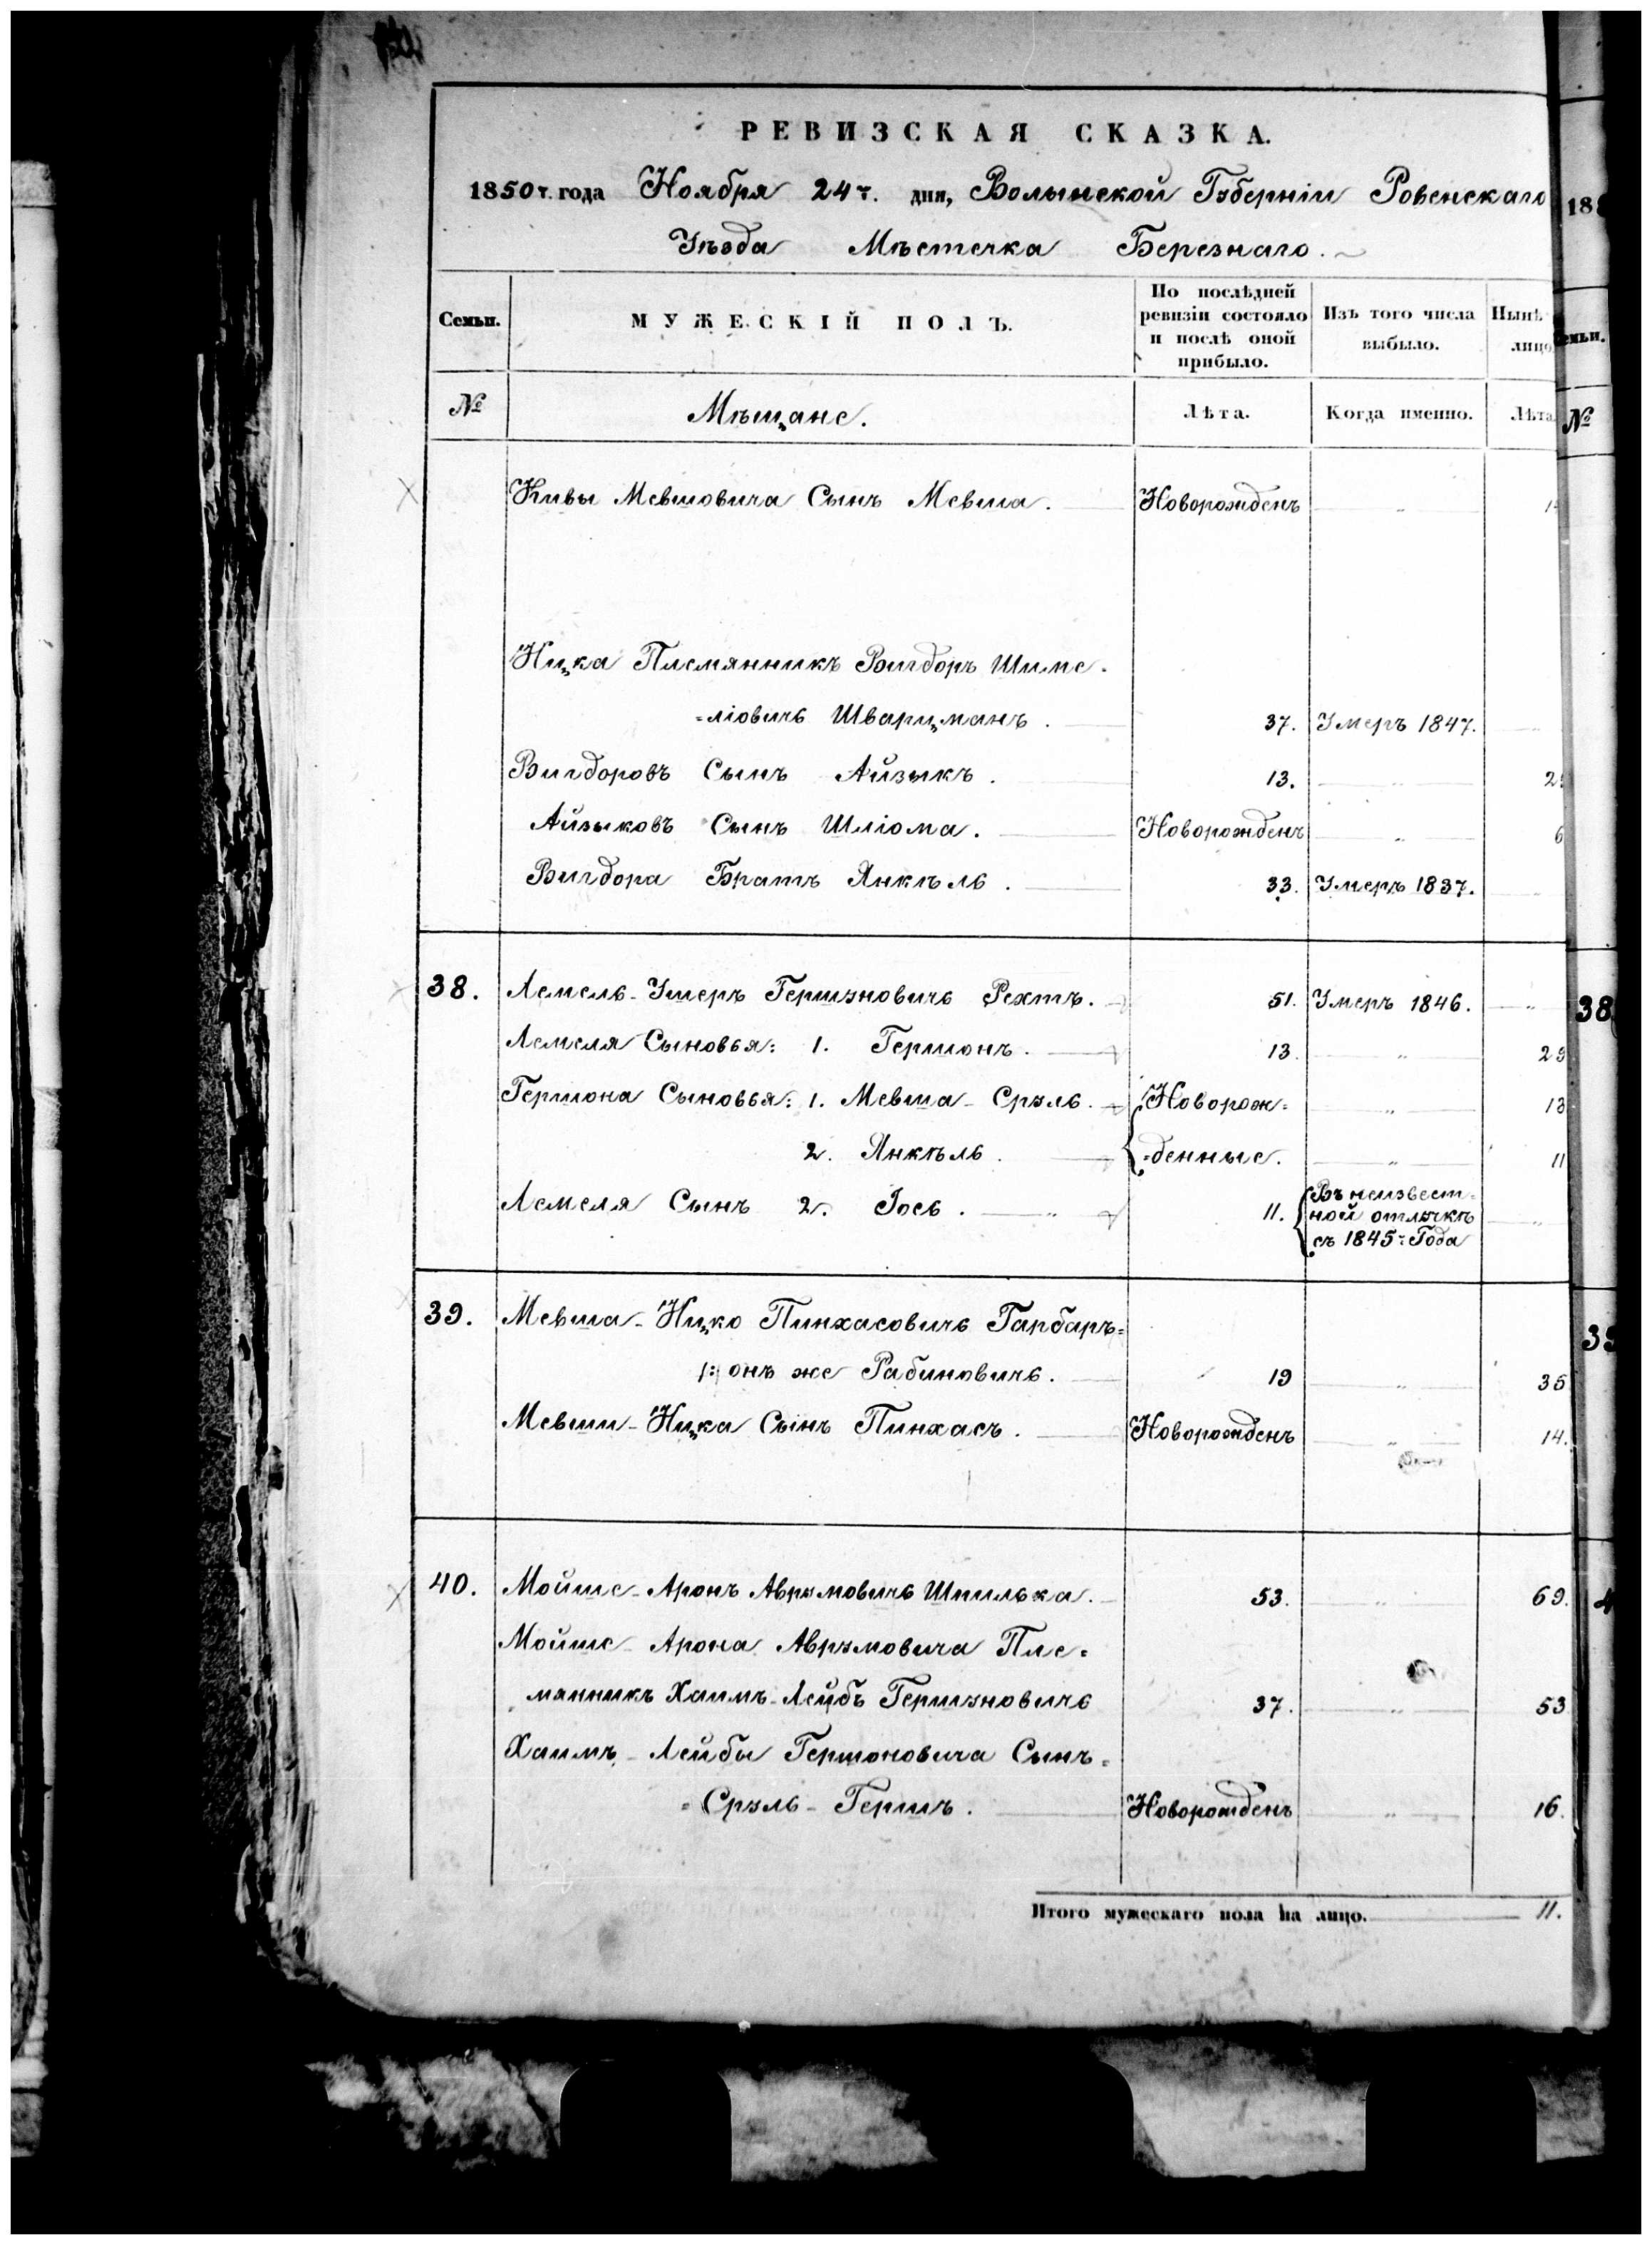 РЕВИЗСКАЯ СКАЗКА.
1850 г. года Ноября 24 г. дня, Волынской Губерніи Ровенскаго
Уѣзда Мѣстечка Березнаго.
Семьи. МУЖЕСКІЙ ПОЛЪ. По послѣдней ревизіи состояло и послѣ оной прибыло. Изъ того числа выбыло. Нынѣ лицо
№ Мѣщане. Лѣта. Когда именно. Лѣта
Кивы Мевшовича Сынъ Мевша. Новорожденъ "
Ицка Племянникъ Вигдоръ Шиме-
=ліовичь Шварцманъ. 37. Умеръ 1847.
Вигдоровъ Сынъ Айзыкъ. 13. "
Айзыковъ Сынъ Шліома. Новорожденъ " 6
Вигдора Братъ Янкѣль. 33. Умеръ 1837.
38. Лемель-Ушеръ Гершуновичь Рехтъ. 51. Умеръ 1846. "
Лемеля Сыновья: 1. Гершонъ. 13. " 29
Гершона Сыновья: 1. Мевша-Сруль. Новорож= " 13
2. Янкѣль. =денные. " 11
Лемеля Сынъ 2. Іось. " 11. Въ неизвест=
ной отлучкѣ
съ 1845 г. Года "
39. Мевша-Ицко Пинхасовичь Гарбаръ=
/:онъ же Рабиновичь. 19 " 35
Мевши-Ицка Сынъ Пинхасъ. Новорожденъ " 14.
40. Мойше-Аронъ Аврумовичь Шпилька. 53. " 69.
Мойше-Арона Аврумовича Пле=
мянникъ Хаимъ-Лейбъ Гершуновичь 37. " 53
Хаимъ-Лейбы Гершоновича Сынъ=
=Сруль-Гершъ. Новорожденъ " 16.
Итого мужескаго пола на лицо. 11.